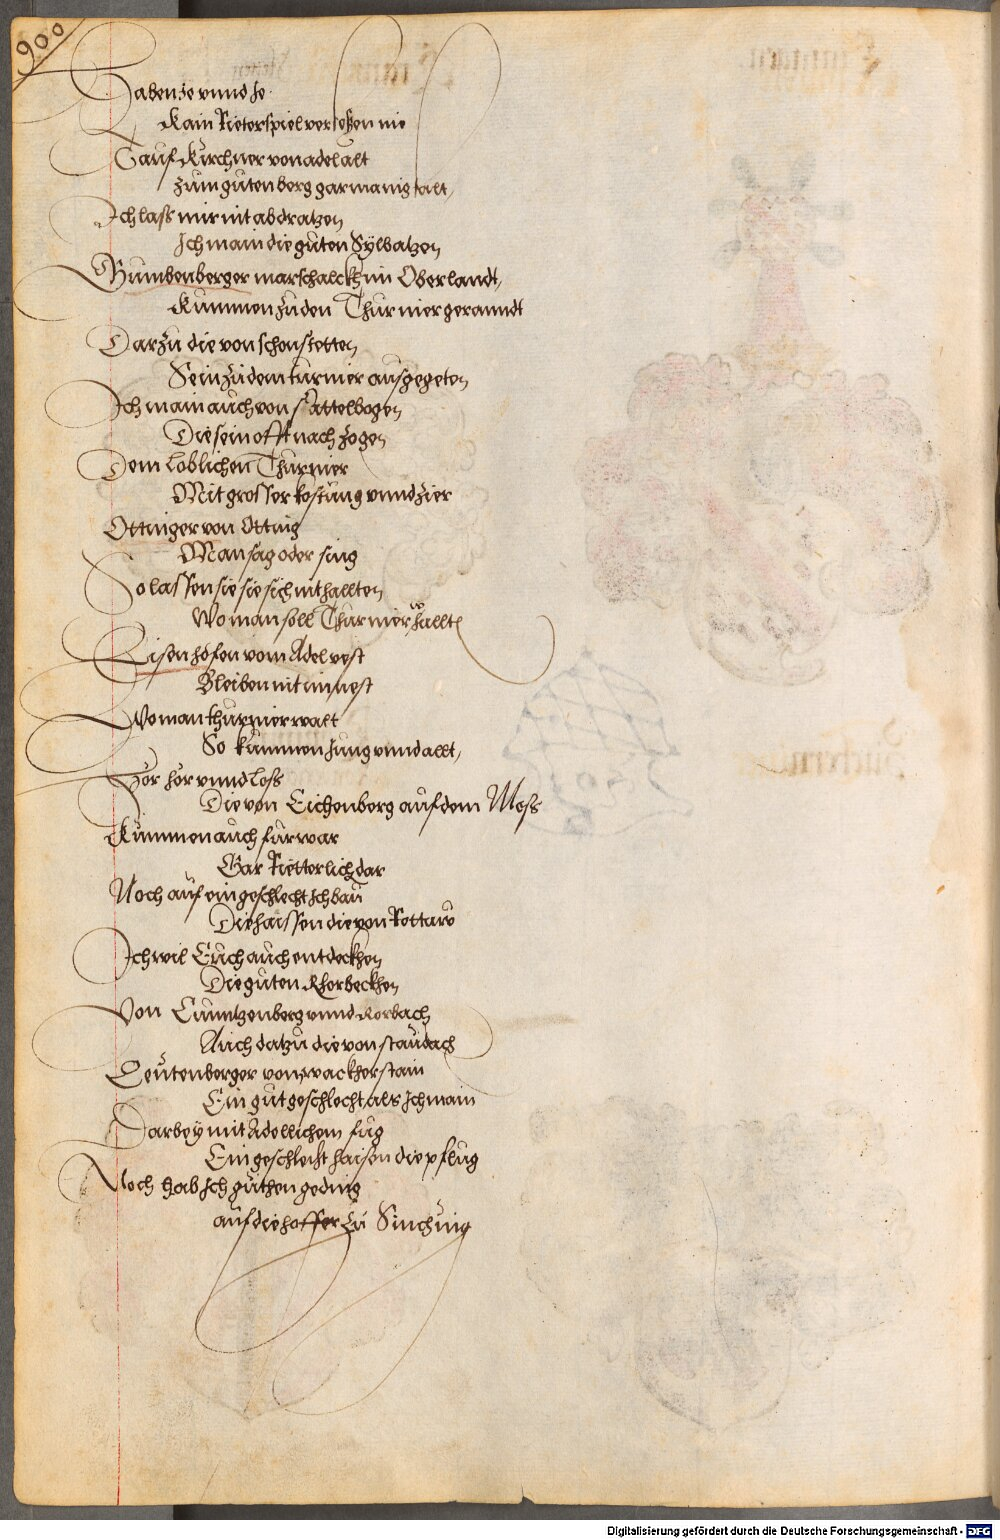 900
Haben Je vnnd Je
Kain Rieterspiel versessen nie
Tauf Kirchner von adel alt
zum gutenberg gar manigfalt,
Ich lass mir nit abdratzen
Ich main die guten Sylbatzen
Gumbenberger marschalckh im Oberlandt,
Kummen zu den Thurnier geranndt
Darzu die von schonstetten
Sein zu dem turnier ausgegeten
Ich main auch von Sattelbogen
Die sein offt nach zogen
Dem loblichen Thurnier
Mit grosser kostung vnnd zier
Ottinger von Otting
Man sag oder sing
So lassen sie sie sich nit hallten
Wo man soll Thurnier hallt
Eisenhofen vom Adel vest
Bleiben nit im nest
Wo man thurnier walt
So kummen Jung vnnd allt,
Hor hor vnnd loss
Die von Eichenberg auf dem Moss
Kummen auch furwar
Gar Rietterlich dar
Noch auf ein geschlecht Ich bau
Die haissen die von Rottaw
Ich wil Euch auch entdeckhen
Die guten Rhorbeckhen
Von Cunntzenberg vnnd Rorbach
Auch datzu die von staudach
Leutenberger von wackherstain
Ein gut geschlecht als Ich main
Darbey mit Adellichem fug
Ein geschlecht haisen die pflug
Noch hab Ich guthen geding
auf die hoffer zu Sinching
Digitalisierung gefördert durch die Deutsche Forschungsgemeinschaft - DFG